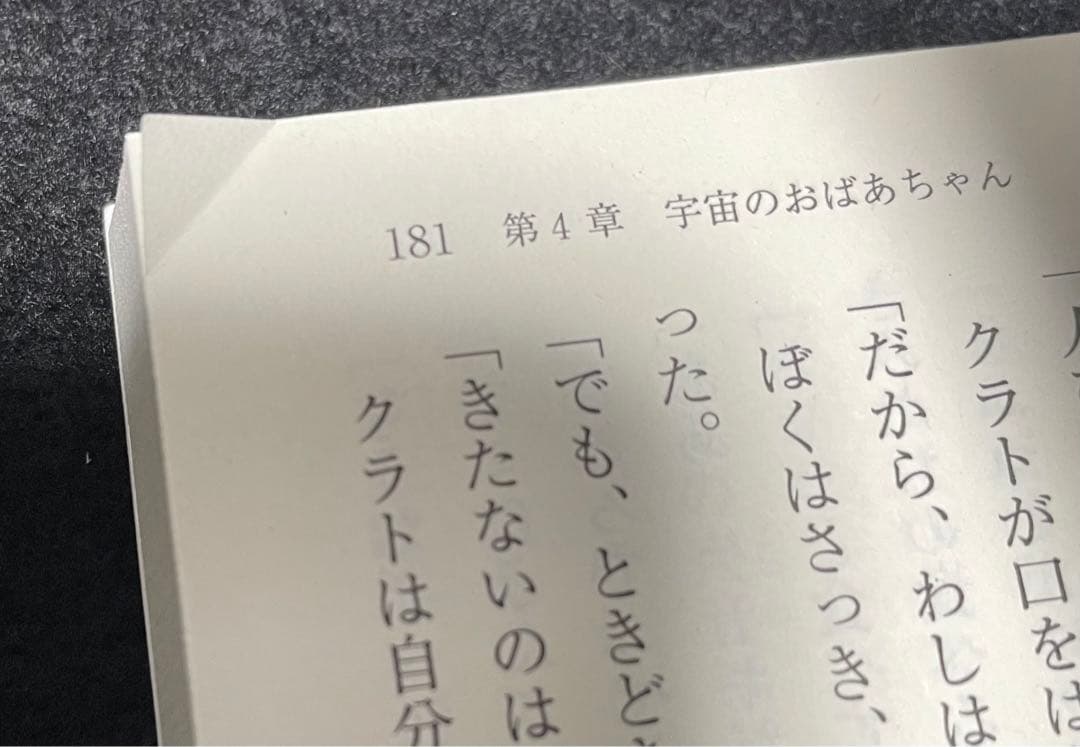 181 第4章 宇宙のおばあちゃん
クラトが口をは
「だから、わしは
ぼくはさっき、
った。
「でも、ときど
「きたないのは
クラトは自分